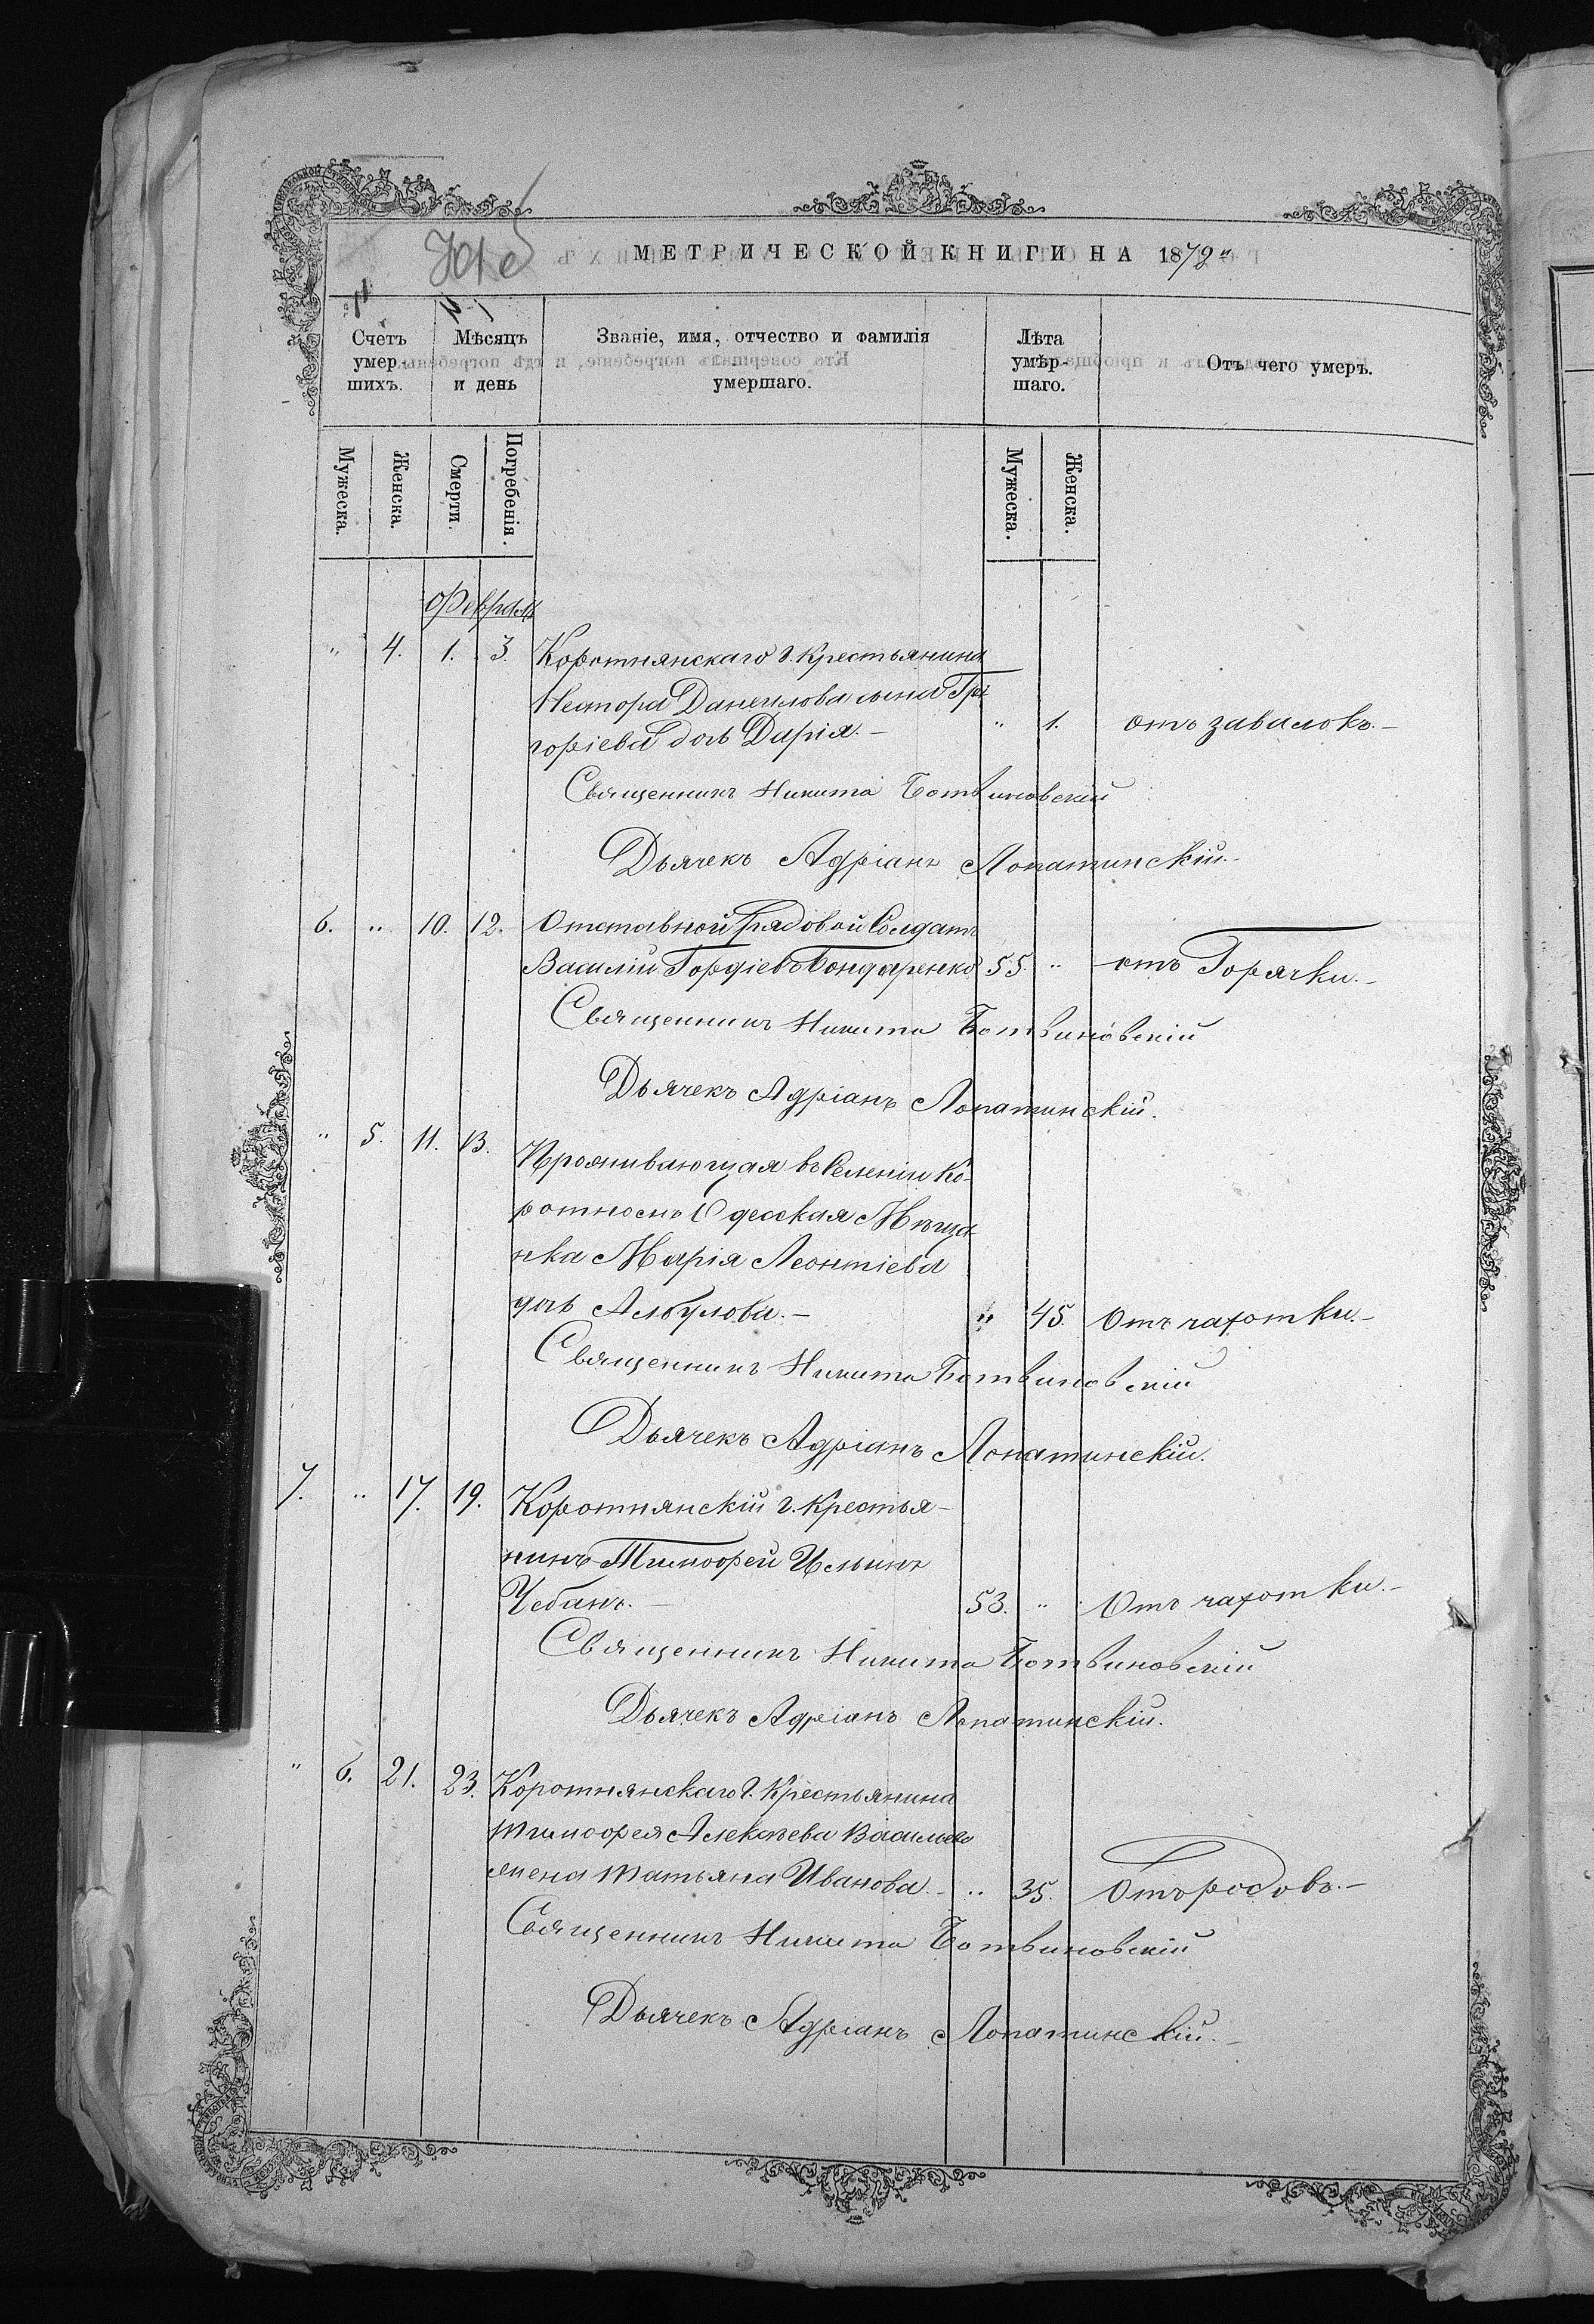 МЕТРИЧЕСКОЙ КНИГИ НА 1872
Счетъ умершихъ.
Мѣсяцъ и день
Званіе, имя, отчество и фамилія умершаго.
Лѣта умѣршаго.
Отъ чего умеръ.
Мужеска.
Женска.
Смерти.
Погребенія.
Мужеска.
Женска.
Февраль
" 4. 1. 3. Коротнянскаго г. крестьянина
Нестора Данеилова сына Гри
горіева дочь Дарія.– " 1. отъ завалокъ.–
Священникъ Никита Ботвиновскій
Дьячекъ Адріанъ Лопатинскій.–
6. " 10. 12. Отставной Рядовой Солдатъ
Василій Гордіевъ Бондаренко 55. " отъ Горячки.–
Священникъ Никита Ботвиновскій
Дьячекъ Адріанъ Лопатинскій.
" 5. 11. 13. Проживающая въ Селеніи Ко-
ротномъ Одесская Мѣща
нка Марія Леонтіева
дочь Албулова.– " 45. Отъ чахотки.–
Священникъ Никита Ботвиновскій
Дьячекъ Адріанъ Лопатинскій.
7. " 17. 19. Коротнянскій г. Крестья-
нинъ Тимофей Ильинъ
Чебанъ.– 53. " Отъ чахотки.–
Священникъ Никита Ботвиновскій
Дьячекъ Адріанъ Лопатинскій.
" 6. 21. 23. Коротнянскаго г. Крестьянина
Тимофея Алексѣева
жена Татьяна Иванова.– " 35. Отъ родовъ.–
Священникъ Никита Ботвиновскій
Дьячекъ Адріанъ Лопатинскій.–